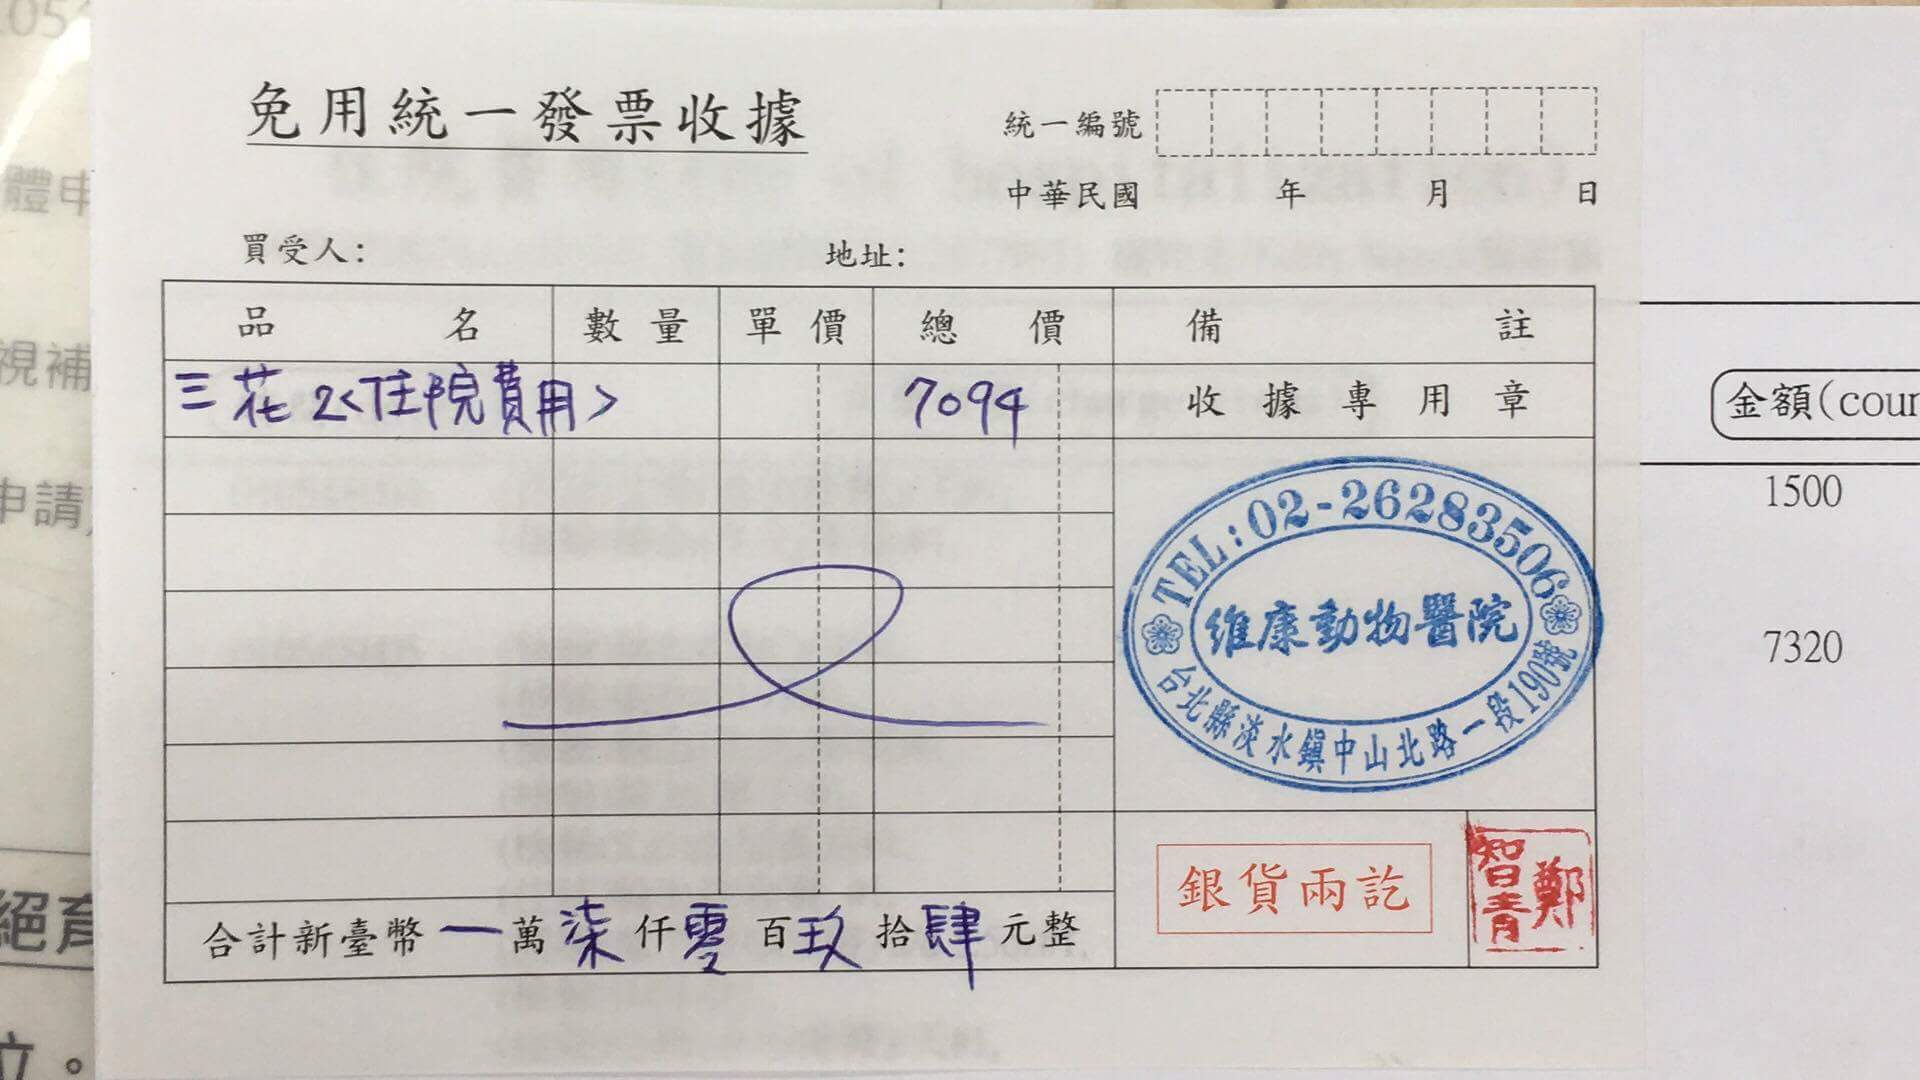 免用統一發票收據
統一編號
中華民國 年 月 日
買受人: 地址:
品名 數量 單價 總價 備註
三花2<住院費用> 7094 收據專用章
TEL:02-26283506
維康動物醫院
台北縣淡水鎮中山北路一段190號
銀貨兩訖
鄭智青
合計新臺幣一萬柒仟零百玖拾肆元整
體申
視補
申請
絕育
立。
金額(cour
1500
7320